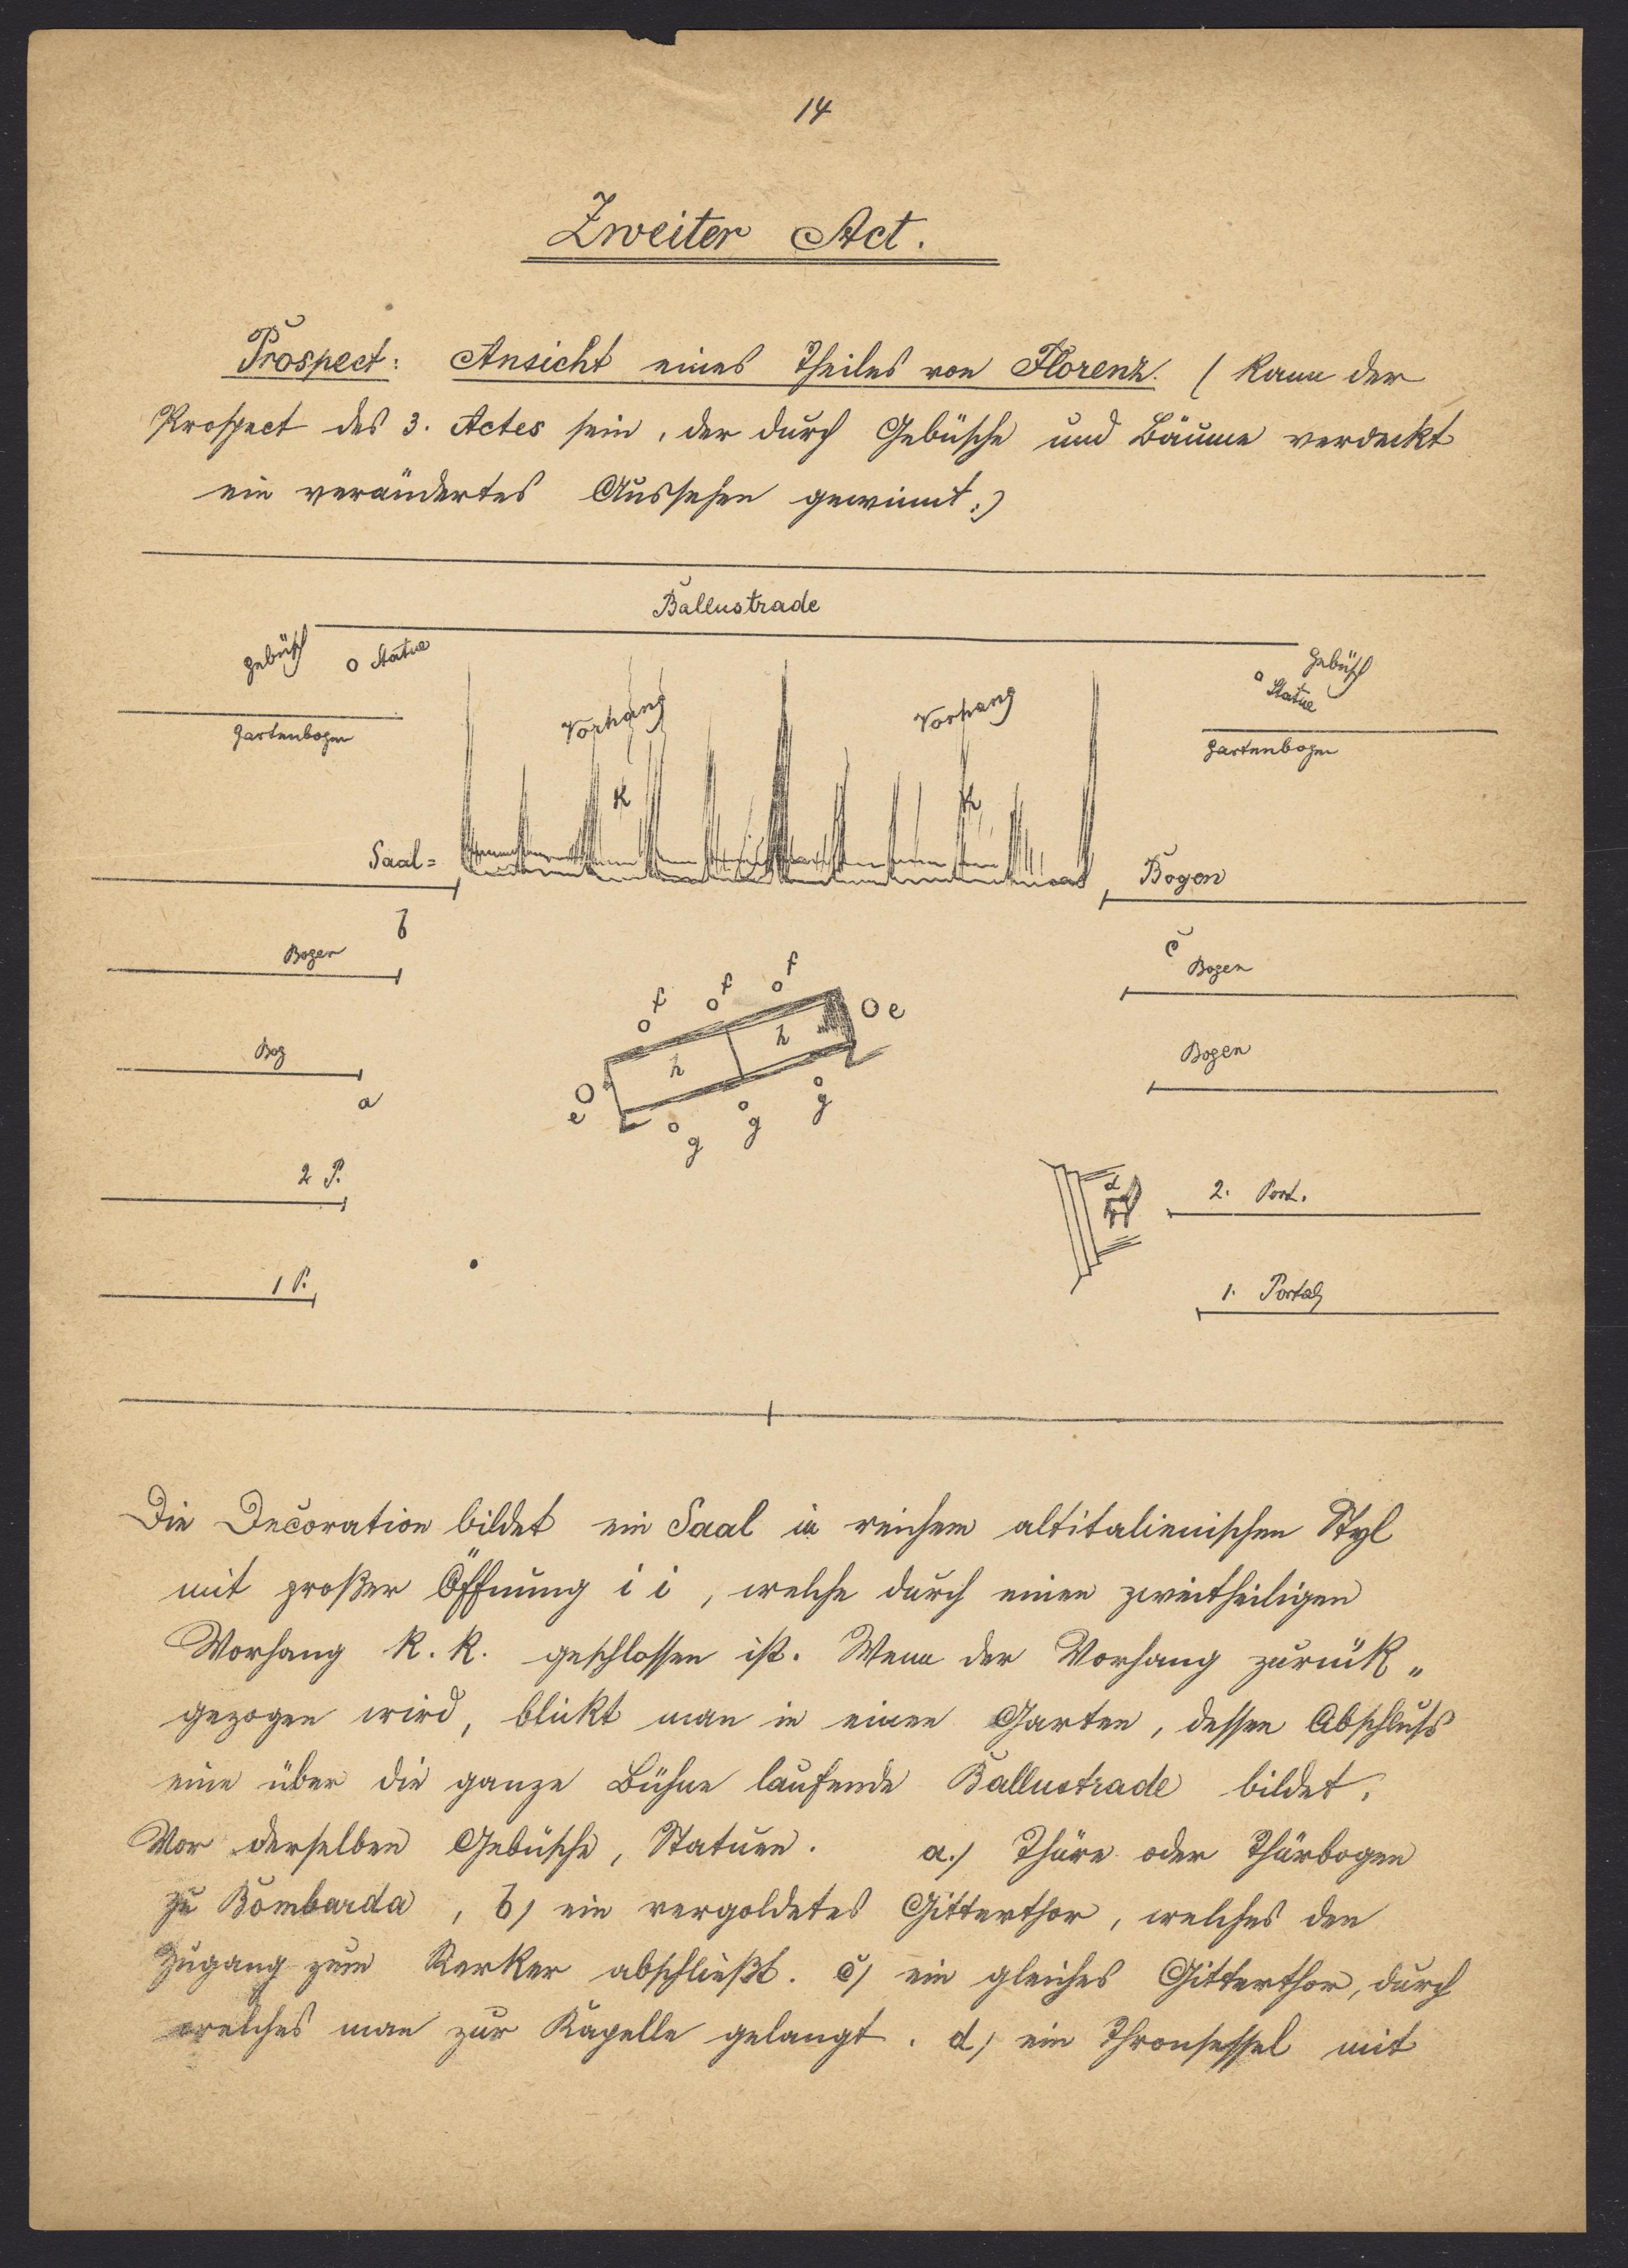 14
Zweiter Act.
Prospect: Ansicht eines Theiles von Florenz. (Kann der
Prospect des 3. Actes sein, der durch Gebüsche und Bäume verdeckt
ein verändertes Aussehen gewinnt:)
Ballustrade
Gebüsch o Statue
Gebüsch
o Statue
Gartenbogen
Vorhang
Vorhang
Gartenbogen
K
K
Saal=
Bogen
b
c
Bogen
Bogen
f f f
e
h h
Bog
Bogen
a
e
g g g
2 P.
d
2. Port.
1 P.
1. Portal
Die Decoration bildet ein Saal in reichem altitalienischen Styl
mit großer Öffnung i i, welche durch einen zweitheiligen
Vorhang K. K. geschlossen ist. Wenn der Vorhang zurük„
gezogen wird, blikt man in einen Garten, dessen Abschluss
eine über die ganze Bühne laufende Ballustrade bildet.
Vor derselben Gebüsche, Statuen. a.) Thüre oder Thürbogen
zu Bombarda, b) ein vergoldetes Gitterthor, welches den
Zugang zum Kerker abschließt. c) ein gleiches Gitterthor, durch
welches man zur Kapelle gelangt. d) ein Thronsessel mit